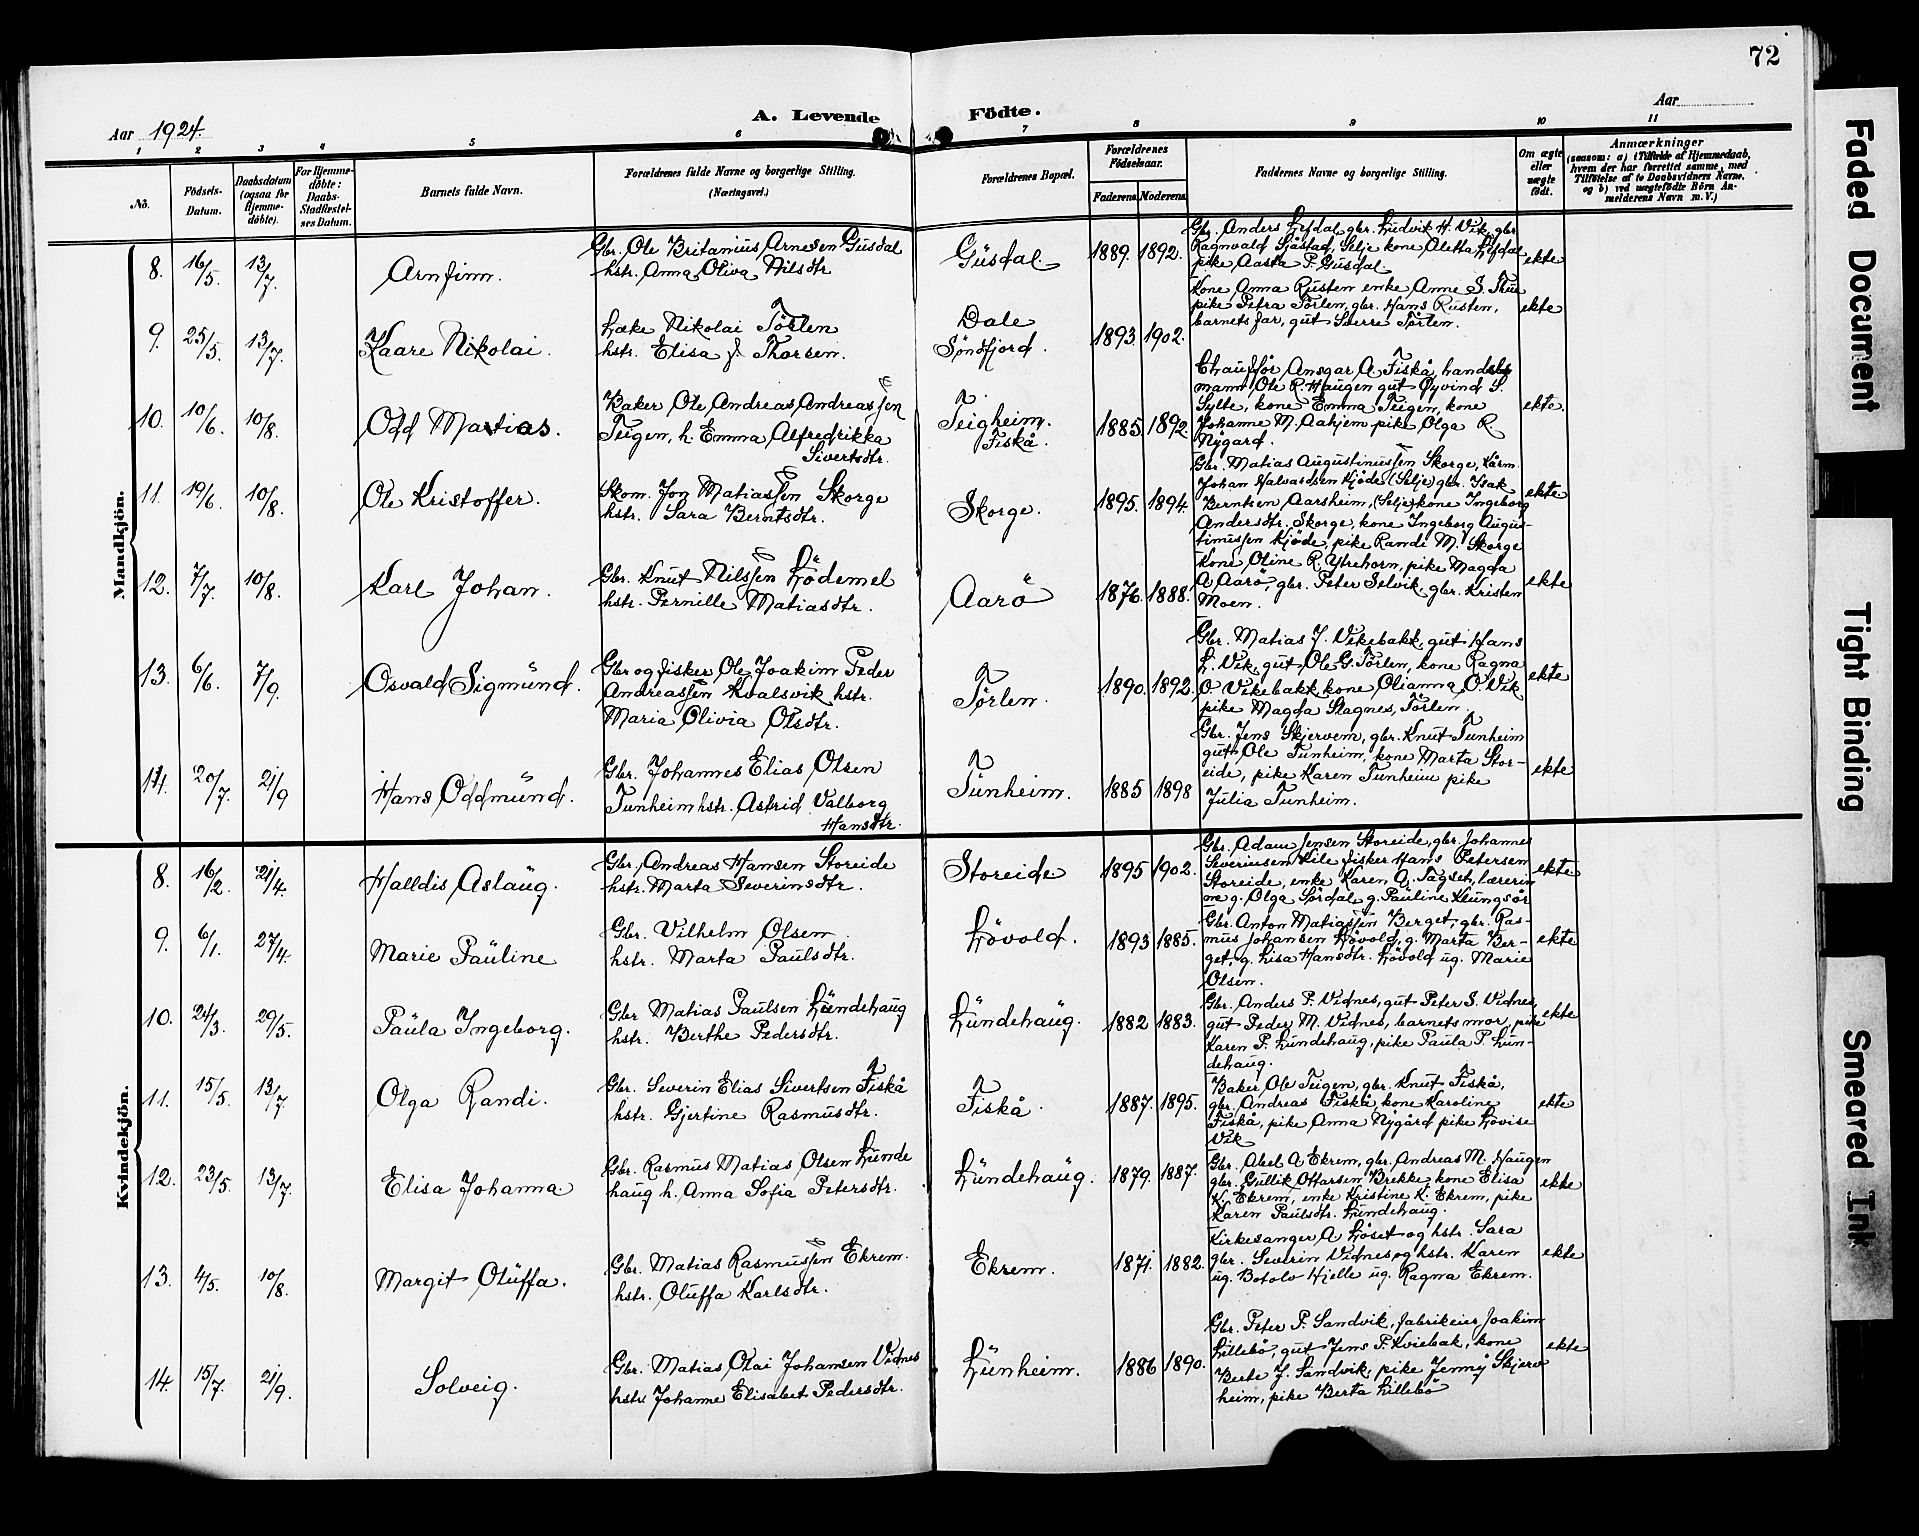 72
Aar 1924.
A. Levende Födte.
Aar
1 2 3 4 5 6 7 8 9 10 11
No.
Födsels-Datum.
Daabsdatum (ogsaa for Hjemme-döbte).
For Hjemme-döbte: Daabs-Stadfæstel-ses Datum.
Barnets fulde Navn.
Forældrenes fulde Navne og borgerlige Stilling.
(Næringsvei.)
Forældrenes Bopæl.
Forældrenes Födselsaar.
Faderens. Moderens.
Faddernes Navne og borgerlige Stilling.
Om ægte eller uægte födt.
Anmærkninger
(saasom: a) i Tilfælde af Hjemmedaab,
hvem der har forrettet samme, med
Tilföielse af to Daabsvidners Navne,
og b) ved uægtefödte Börn An-
melderens Navn m. V.)
Mandkjön.
8. 16/5. 13/7. Arnfinn.
Gbr. Ole Britanius Arnesen Gusdal
hstr. Anna Oliva Nilsdtr
Gusdal 1889. 1892.
Gbr. Anders Lefdal, gbr. Ludvik H. Vik, gbr.
Ragnvald Sjåstad, Selje kone Aletta Lefdal
pike Aasta P. Gusdal
ekte
9. 25/5. 13/7. Kaare Nikolai.
Læke Nikolai Törlen
hstr. Elisa J. Thorsen.
Dale
Söndfjord. 1893 1902.
Kone Anna Rusten enke Anne S. Thue
pike Petra Törlen, gbr. Hans Rusten,
barnets far, gut Sverre Törlen.
ekte
10. 10/6. 10/8. Odd Matias.
Baker Ole Andreas Andreassen
Teigen, h. Emma Alfredrikka
Sivertsdtr.
Teigheim.
Fiskå. 1885 1892.
Chaufför Ansgar A. Fiskå, handels
mann Ole R. Haugen gut Öyvind S.
Sylte, kone Emma Teigen, kone
Johanne M. Aahjem pike Olga R
Nygard.
ekte.
11. 19/6. 10/8. Ole Kristoffer.
Skom. Jon Matiassen Skorge
hstr. Sara Berntsdtr.
Skorge. 1895. 1894.
Gbr. Matias Augustinussen Skorge, Kårm.
Johan Halvardsen Kjöde (Selje) gbr. Isak
Berntsen Aarsheim, (Selje) kone Ingeborg
Andersdtr. Skorge, kone Ingeborg Augus-
tinussen Kjöde, pike Randi M. Skorge
ekte
12. 7/7. 10/8. Karl Johan.
Gbr. Knut Nilssen Lödemel
hstr. Pernille Matiasdtr.
Aarö 1876. 1888.
Kone Oline R. Ytrehorn, pike Magda
A Aarö, gbr. Peter Selvik, gbr. Kristen
Moen.
ekte
13. 6/6. 7/9. Osvald Sigmund.
Gbr og fisker Ole Joakim Peder
Andreassen Kvalsvik hstr.
Maria Olivia Olsdtr.
Törlen. 1890. 1892.
Gbr. Matias J. Vikebakk, gut Hans
L. Vik, gut Ole G. Törlen, kone Ragna
O Vikebakk kone Olianna O. Vik
pike Magda Slagnes, Törlen.
ekte
14. 20/7. 21/9 Hans Oddmund.
Gbr. Johannes Elias Olsen
Tunheim hstr. Astrid Valborg
Hansdtr.
Tunheim. 1885 1898
Gbr. Jens Skjervem, gbr. Knut Tunheim
gut Ole Tunheim, kone Marta Stor-
eide, pike Karen Tunheim pike
Julia Tunheim.
ekte
Kvindekjön.
8. 16/2. 21/4. Halldis Aslaug.
Gbr. Andreas Hansen Storeide
hstr. Marta Severinsdtr.
Storeide 1895 1902.
Gbr. Adam Jensen Storeide, gbr. Johannes
Severinsen Kile fisker Hans Petersen
Storeide, enke Karen A. Tagset, lærerin
ne g. Olga Sördal g. Pauline Klungsör
ekte
9. 6/1. 27/4. Marie Pauline
Gbr. Vilhelm Olsen
hstr. Marta Paulsdtr.
Lövold. 1893 1885.
Gbr. Anton Matiassen Berget, gbr. Ras-
mus Johansen Lövold, g. Marta Ber-
get, g. Lisa Hansdtr. Lövold ug. Marie
Olsen.
ekte
10. 24/3. 29/5. Paula Ingeborg.
Gbr Matias Paulsen Lundehaug
hstr. Berthe Pedersdtr.
Lundehaug. 1882 1883.
Gbr. Anders P. Vidnes, gut Peter S. Vidnes,
gut Peder M. Vidnes, barnets mor, pike
Karen P. Lundehaug, pike Paula P. Lun-
dehaug.
ekte
11. 15/5. 13/7. Olga Randi.
Gbr. Severin Elias Sivertsen Fiskå
hstr. Gjertine Rasmusdtr.
Fiskå. 1887. 1895.
Baker Ole Teigen, gbr. Knut Fiskå,
gbr. Andreas Fiskå kone Karoline
Fiskå, pike Anna Nygård pike Lovise
Vik
ekte
12. 23/5. 13/7. Elisa Johanna
Gbr. Rasmus Matias Olsen Lunde
haug h. Anna Sofia Petersdtr.
Lundehaug. 1879. 1887.
Gbr. Abel A Ekrem, gbr. Andreas M. Haugen
gbr. Gullik Ottarsen Brekke, kone Elisa
K. Ekrem, enke Kristine K. Ekrem, pike
Karen Paulsdtr. Lundehaug.
ekte
13. 4/5. 10/8. Margit Oluffa.
Gbr. Matias Rasmussen Ekrem.
hstr. Oluffa Karlsdtr.
Ekrem. 1871. 1882.
Kirkesanger A Löset og hstr. Sara
gbr. Severin Vidnes og hstr. Karen
ug. Botolv Hjelle ug. Ragna Ekrem.
ekte
14. 15/7. 21/9. Solveig.
Gbr. Matias Olai Johansen Vidnes
hstr Johanne Elisabet Pedersdtr.
Lunheim. 1886 1890.
Gbr. Peter P. Sandvik, fabrikeier Joakim
Lillebö, gut Jens P. Kviebak, kone
Berte J. Sandvik, pike Jenny Skjerv
heim, pike Berta Lillebö
ekte
Faded Document
Tight Binding
Smeared Ink